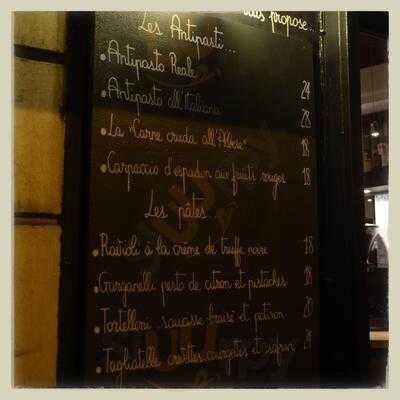 propose...
Les Antipasti...
• Antipasto Reale 24
• Antipasto all'Italiana 28
• La "Carne cruda all'Albese" 18
• Carpaccio d'espadon aux fruits rouges 18
Les pâtes
• Ravioli à la crème de truffe noire 18
• Garganelli pesto de citron et pistaches 18
• Tortelloni saucisse fraise et potiron 20
• Tagliatelle crevettes courgettes et safran